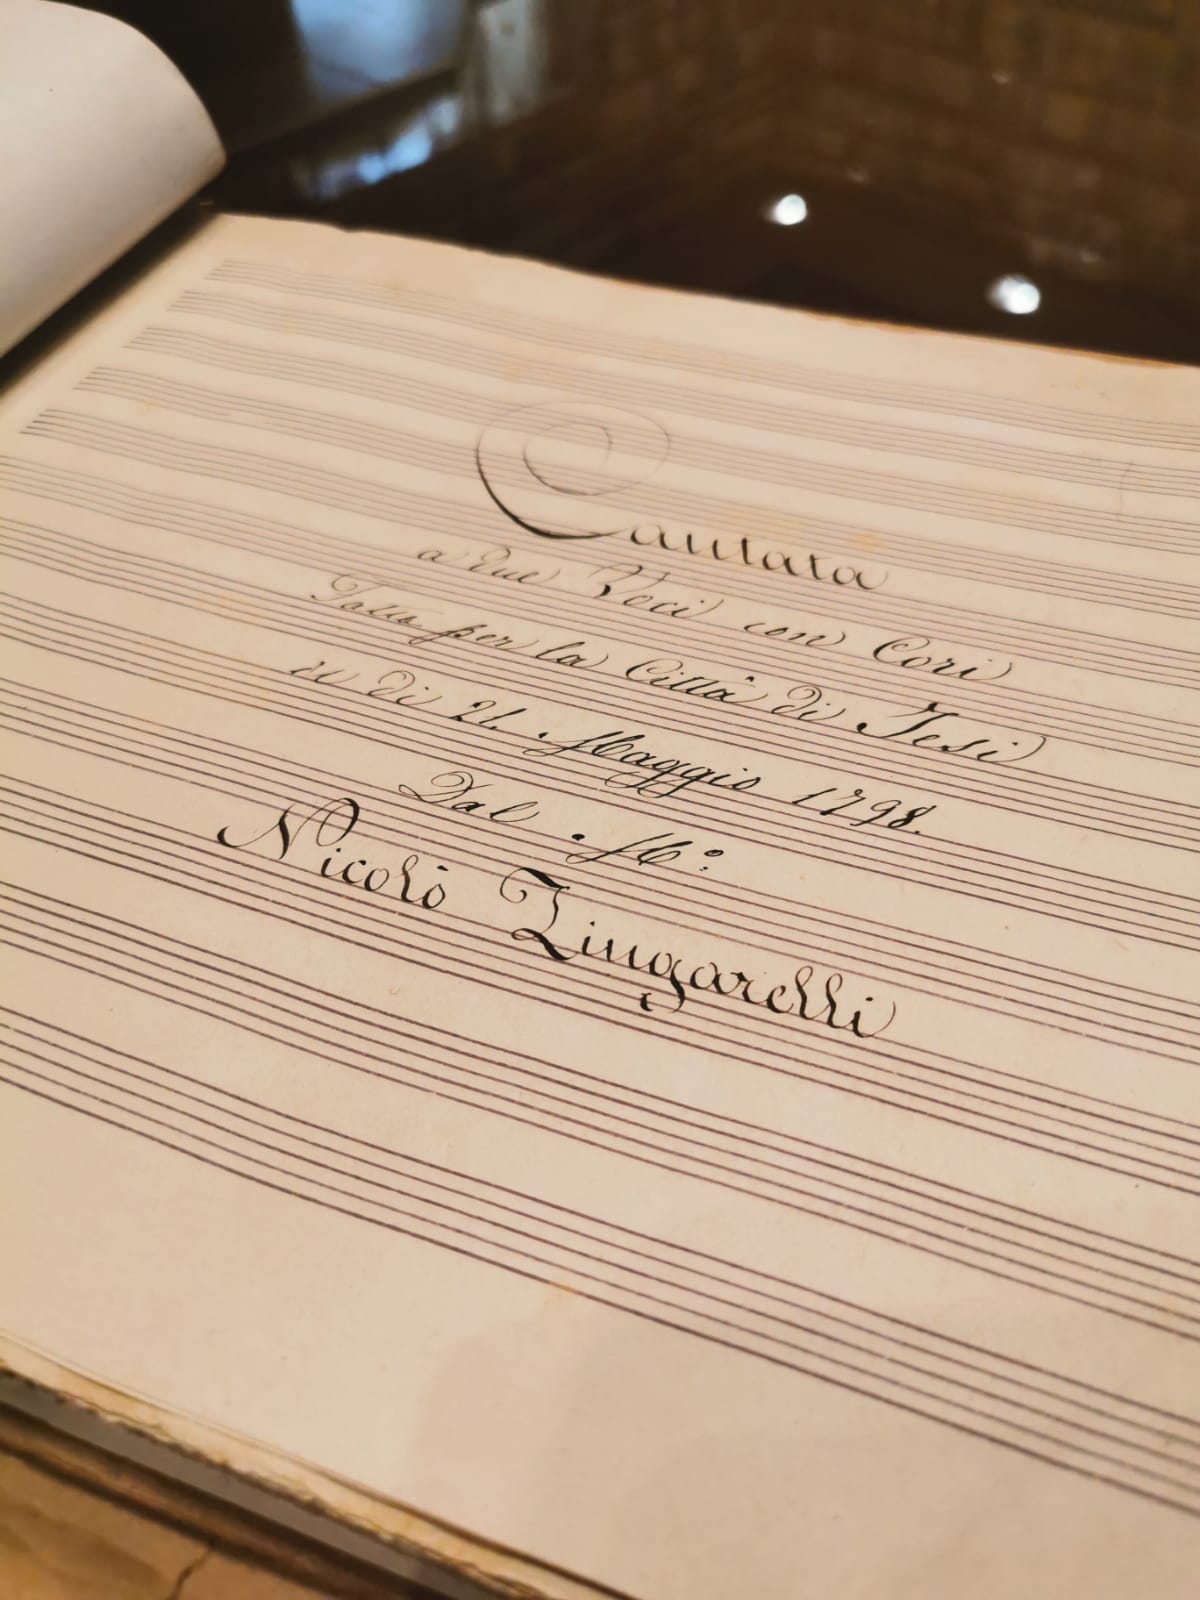 Cantata
a due Voci con Cori
Fatta per la Città di Jesi
in di 21. Maggio 1798.
Dal M.º
Nicolò Zingarelli